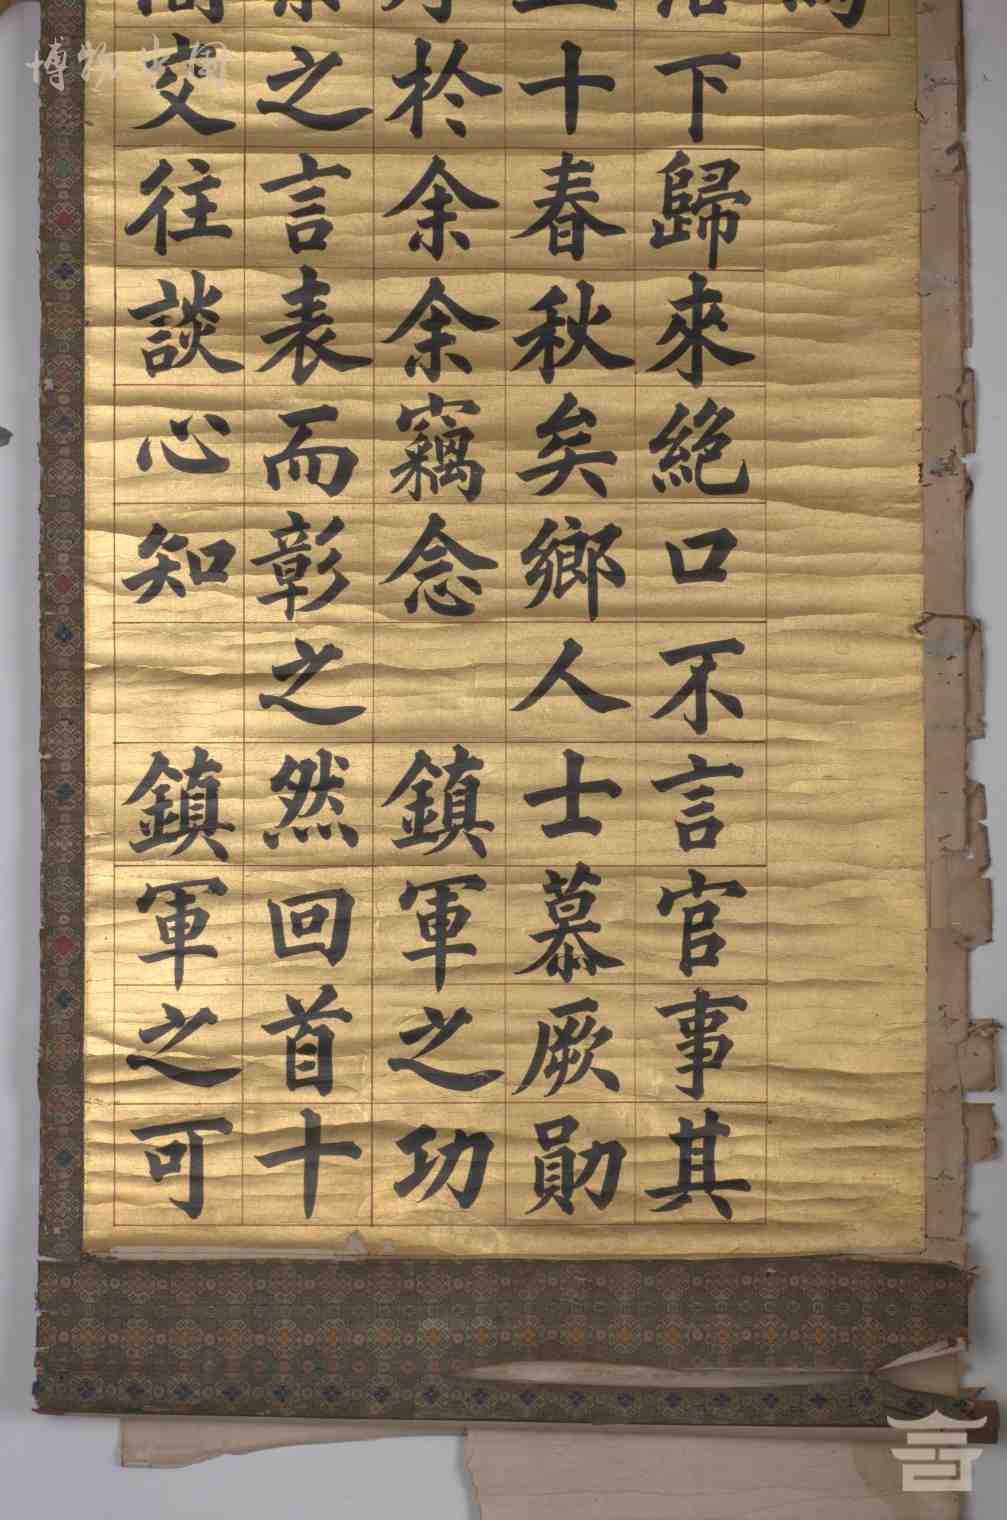 下歸來絕口不言官事其
十春秋矣鄉人士慕厥勛
於余余竊念鎮軍之功
之言表而彰之然回首十
交往談心知鎮軍之可
博物中国